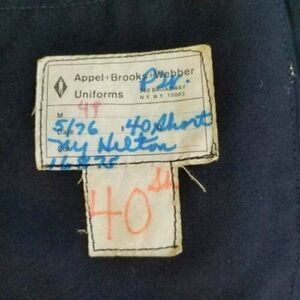 Appel+Brooks+Webber
Uniforms
740 BROADWAY
N.Y. N.Y. 10003
M 49
5/76 40 Short
Jay Hilton
40 Sh